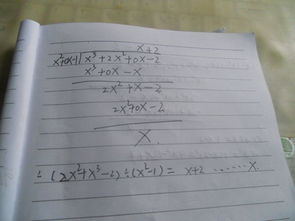 x+2
x²+0x-1 x³+2x²+0x-2
x³+0x-x
2x²+x-2
2x²+0x-2
x.
∴(2x²+x³-2)÷(x²-1)= x+2 ······x.